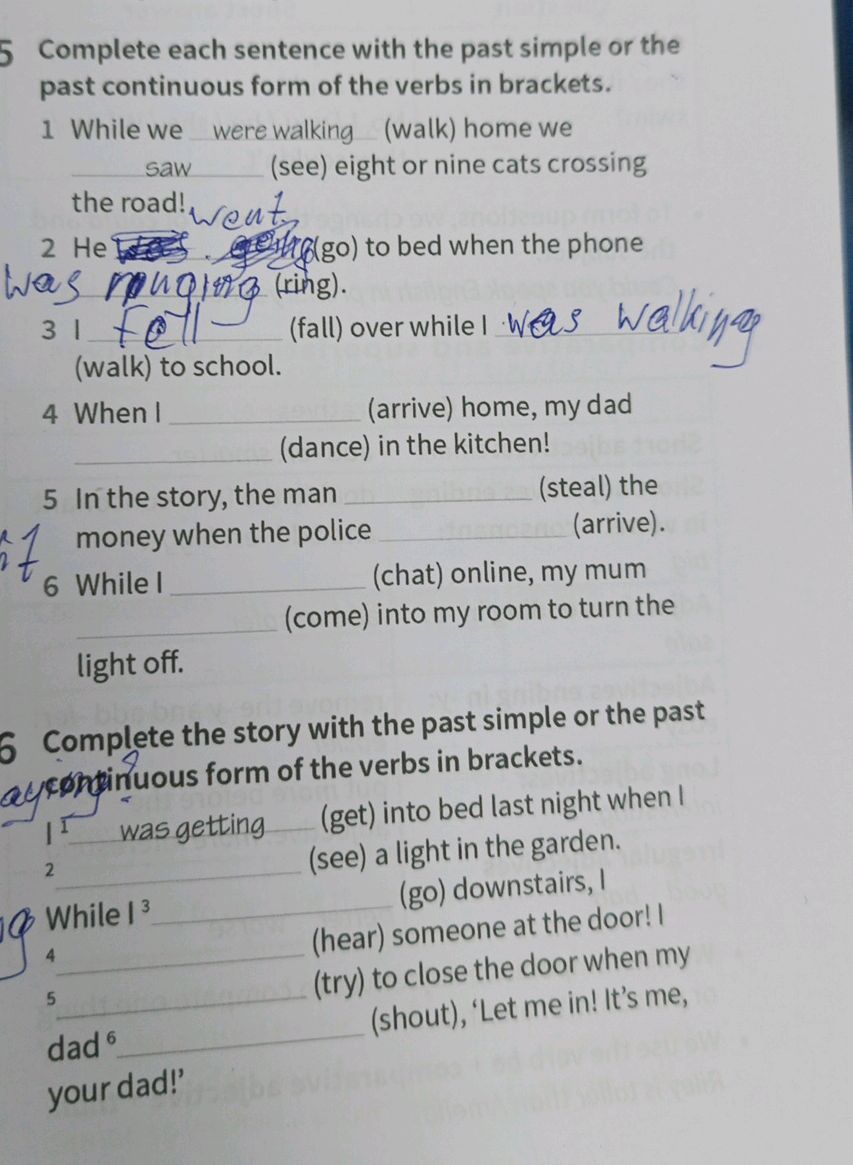 5 Complete each sentence with the past simple or the
past continuous form of the verbs in brackets.
1 While we were walking (walk) home we
saw (see) eight or nine cats crossing
the road!
went
2 He (go) to bed when the phone
was (ring).
3 I fell (fall) over while I was walking
(walk) to school.
4 When I ____ (arrive) home, my dad
____ (dance) in the kitchen!
5 In the story, the man ____ (steal) the
money when the police ____ (arrive).
6 While I ____ (chat) online, my mum
____ (come) into my room to turn the
light off.
6 Complete the story with the past simple or the past
continuous form of the verbs in brackets.
I 1 was getting (get) into bed last night when I
2 ____ (see) a light in the garden.
While I 3 ____ (go) downstairs, I
4 ____ (hear) someone at the door! I
5 ____ (try) to close the door when my
dad 6 ____ (shout), ‘Let me in! It’s me,
your dad!’